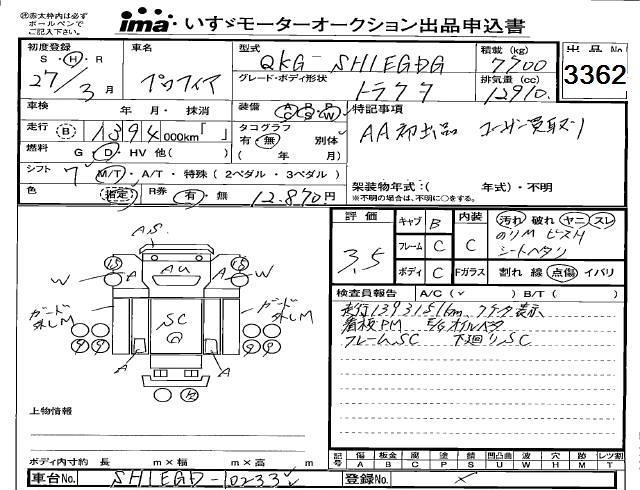 ㊟赤太枠内は必ず
ボールペンで
ご記入下さい。
ima いすゞモーターオークション出品申込書
初度登録
S・H・R
27/3月
車名
プロフィア
型式
QKG-SH1EGDG
グレード・ボディ形状
トラクタ
積載 (kg)
7700
排気量 (cc)
12910
出品No.
3362
車検 年 月・抹消
走行 B 1394 000km「 」
燃料 G・D・HV 他( )
シフト 7 M/T・A/T・特殊(2ペダル・3ペダル)
色 指定 R券 有・無 12,870円
装備 AC PS PW
タコグラフ 別体
有・無 ( 年 月)
特記事項
AA初出品
架装物年式:( 年式)・不明
※不明の場合は、不明に○をする。
評価
3.5
キャブ B
フレーム C
ボディ C
内装 C
Fガラス
汚れ 破れ ヤニ スレ
シートヘタリ
割れ 線 点傷 イバリ
検査員報告 A/C(✓) B/T( )
看板PM E/gオイルベタ
フレームSC 下廻りSC
AS
AU
W
A
A
W
ガード外しM
ガード外しM
SC
A
A
上物情報
ボディ内寸約 長 m×幅 m×高 m
記号 傷 板金 腐 塗 錆 凹凸曲 波 穴 跡 レツ割
A B C P S U W H M T
車台No. SH1EGD-10233
登録No.